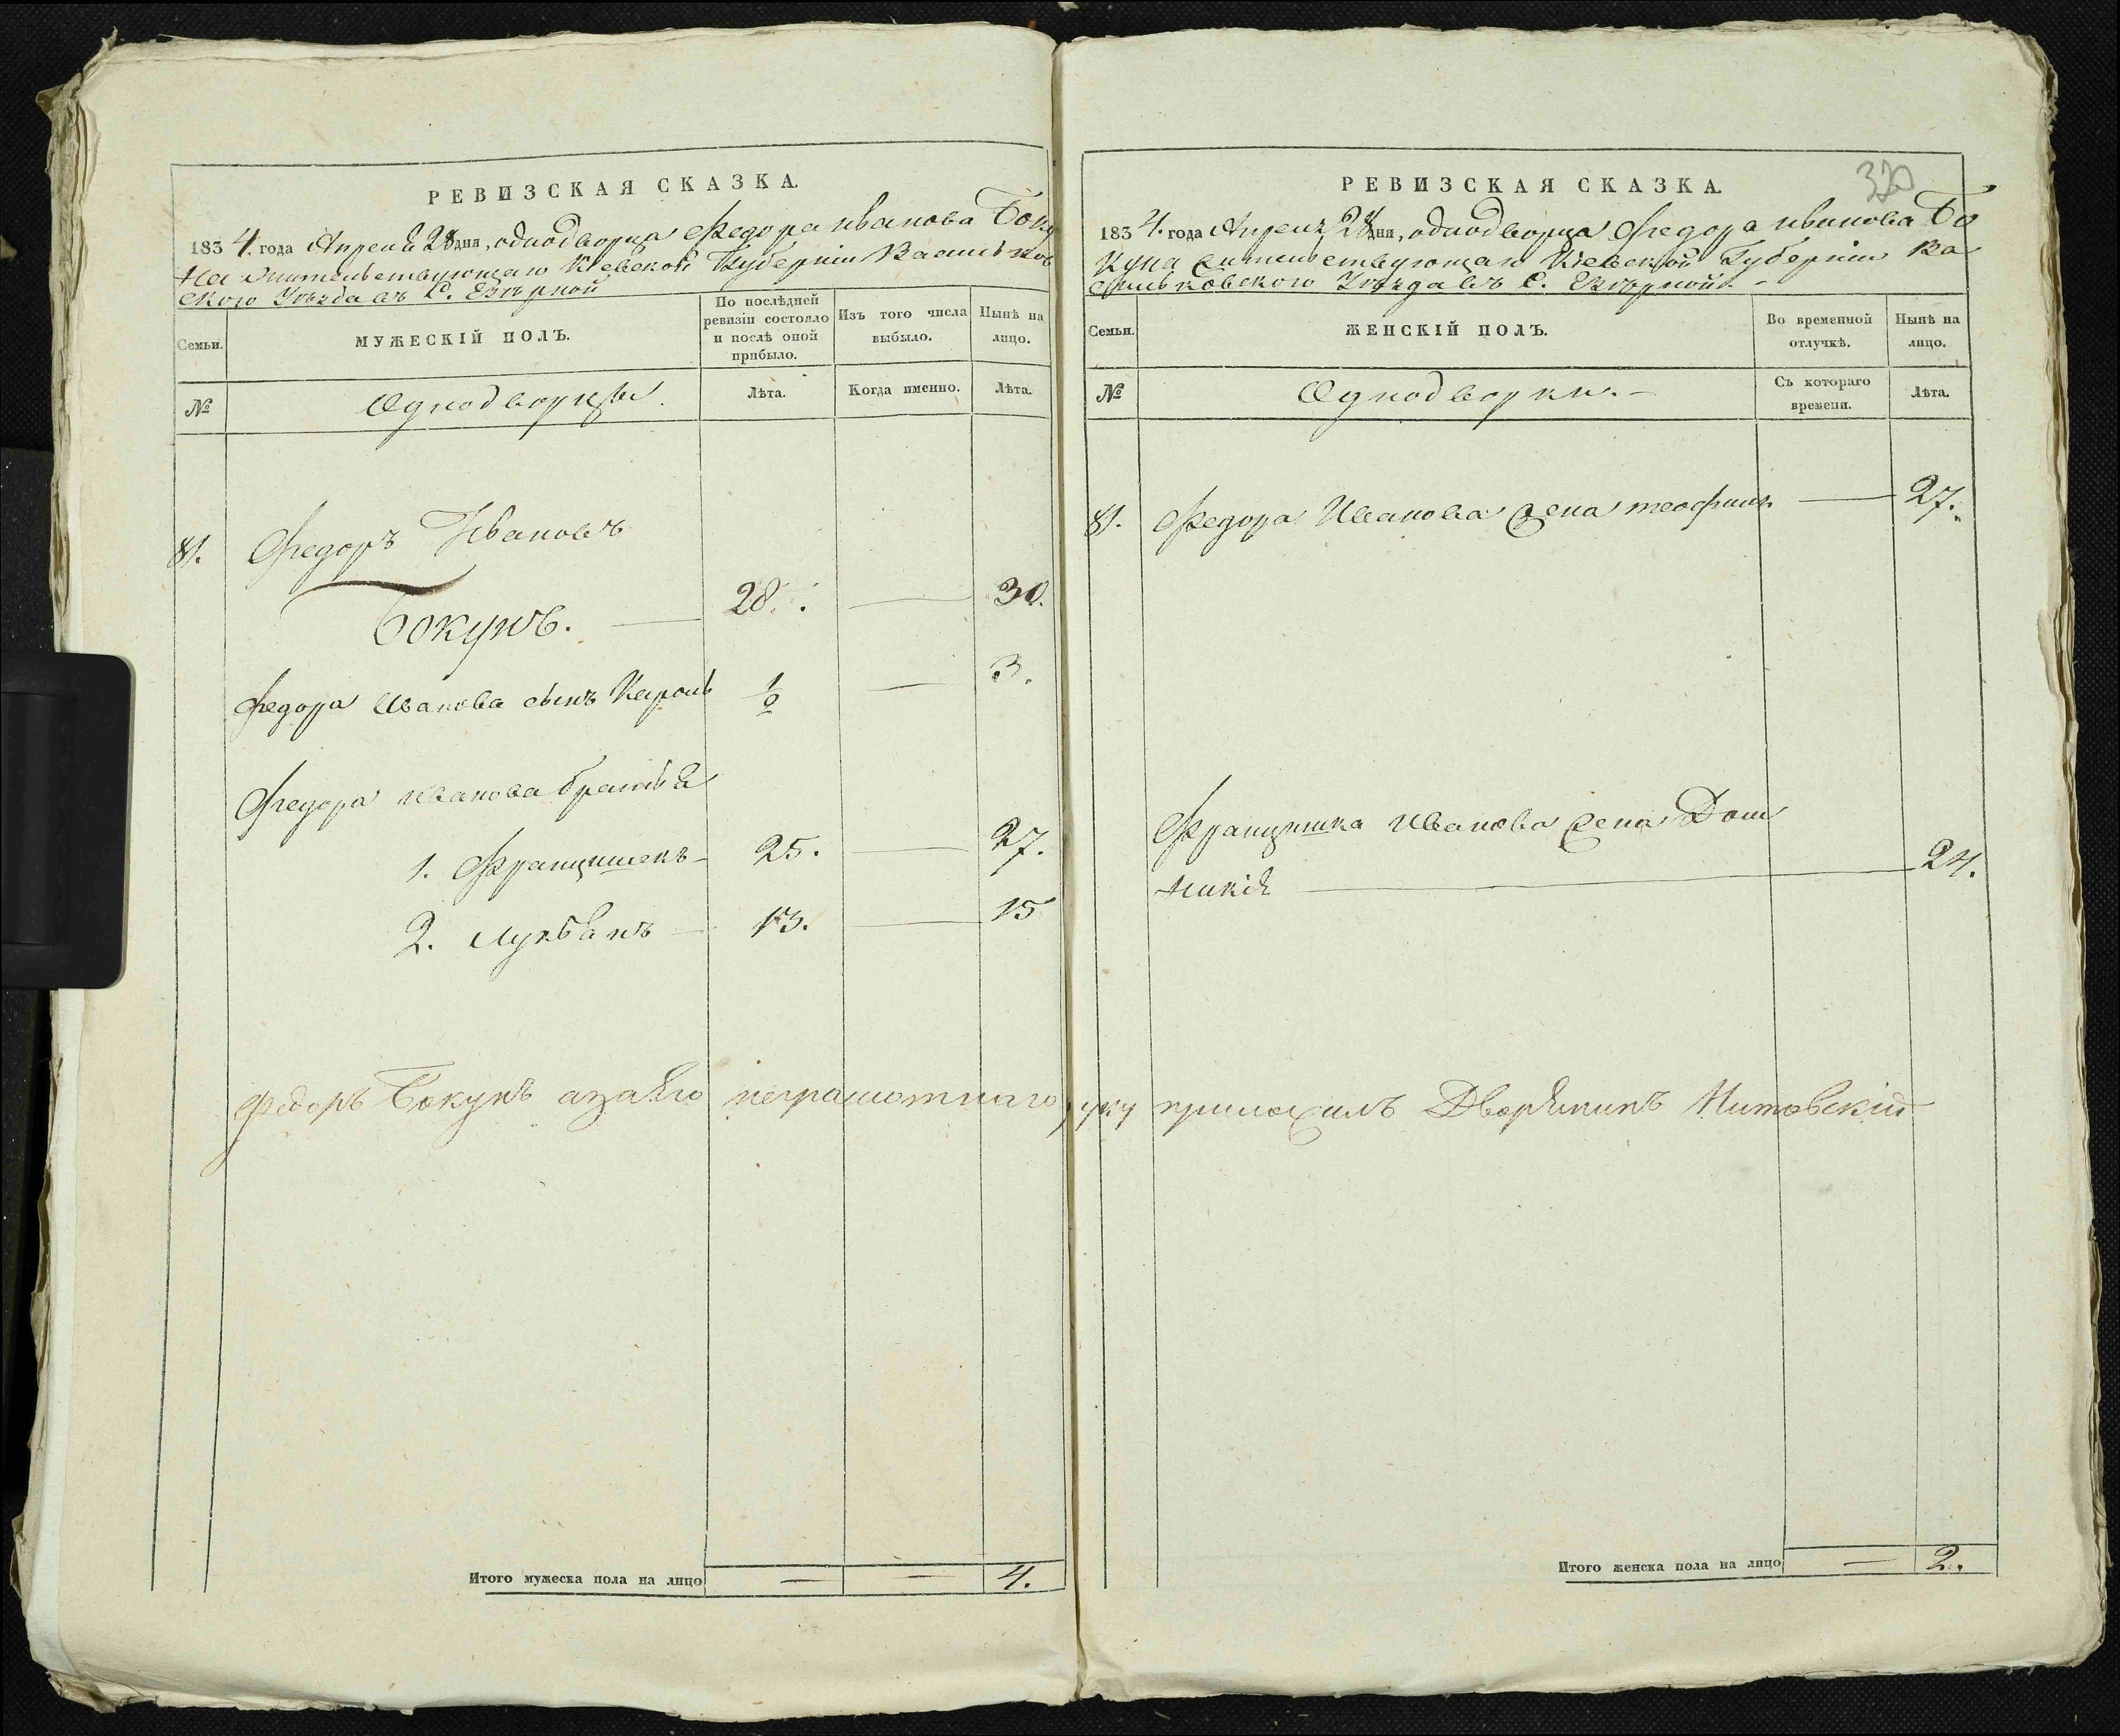 РЕВИЗСКАЯ СКАЗКА.
1834. года Апреля 28 дня, однодворца Федора Иванова Боку
на жительствующаго Кіевской Губерніи Васильков
скаго Уѣзда въ С. Езѣрной
Семьи.
МУЖЕСКІЙ ПОЛЪ.
По послѣдней ревизіи состояло и послѣ оной прибыло.
Изъ того числа выбыло.
Нынѣ на лицо.
№
Однодворцы.
Лѣта.
Когда именно.
Лѣта.
81. Федоръ Ивановъ
Бокунъ. — 28. — 30.
Федора Иванова сынъ Кароль 1/0 — 3.
Федора Иванова братья
1. Францишекъ — 25. — 27.
2. Лукьянъ — 13. — 15
Федоръ Бокунъ а за его неграмотнаго руку приложилъ Дворянинъ Витовскій
Итого мужеска пола на лицо — — 4.
320
РЕВИЗСКАЯ СКАЗКА.
1834. года Апреля 28 дня, однодворца Федора Иванова Бо
куна жительствующаго Кіевской Губерніи Ва
сильковскаго Уѣзда въ С. Езѣрной. —
Семьи.
ЖЕНСКІЙ ПОЛЪ.
Во временной отлучкѣ.
Нынѣ на лицо.
№
Однодворки. —
Съ котораго времени.
Лѣта.
81. Федора Иванова жена Теофиля — 27.
Францишка Иванова жена Доми
никія — 24.
Итого женска пола на лицо — 2.